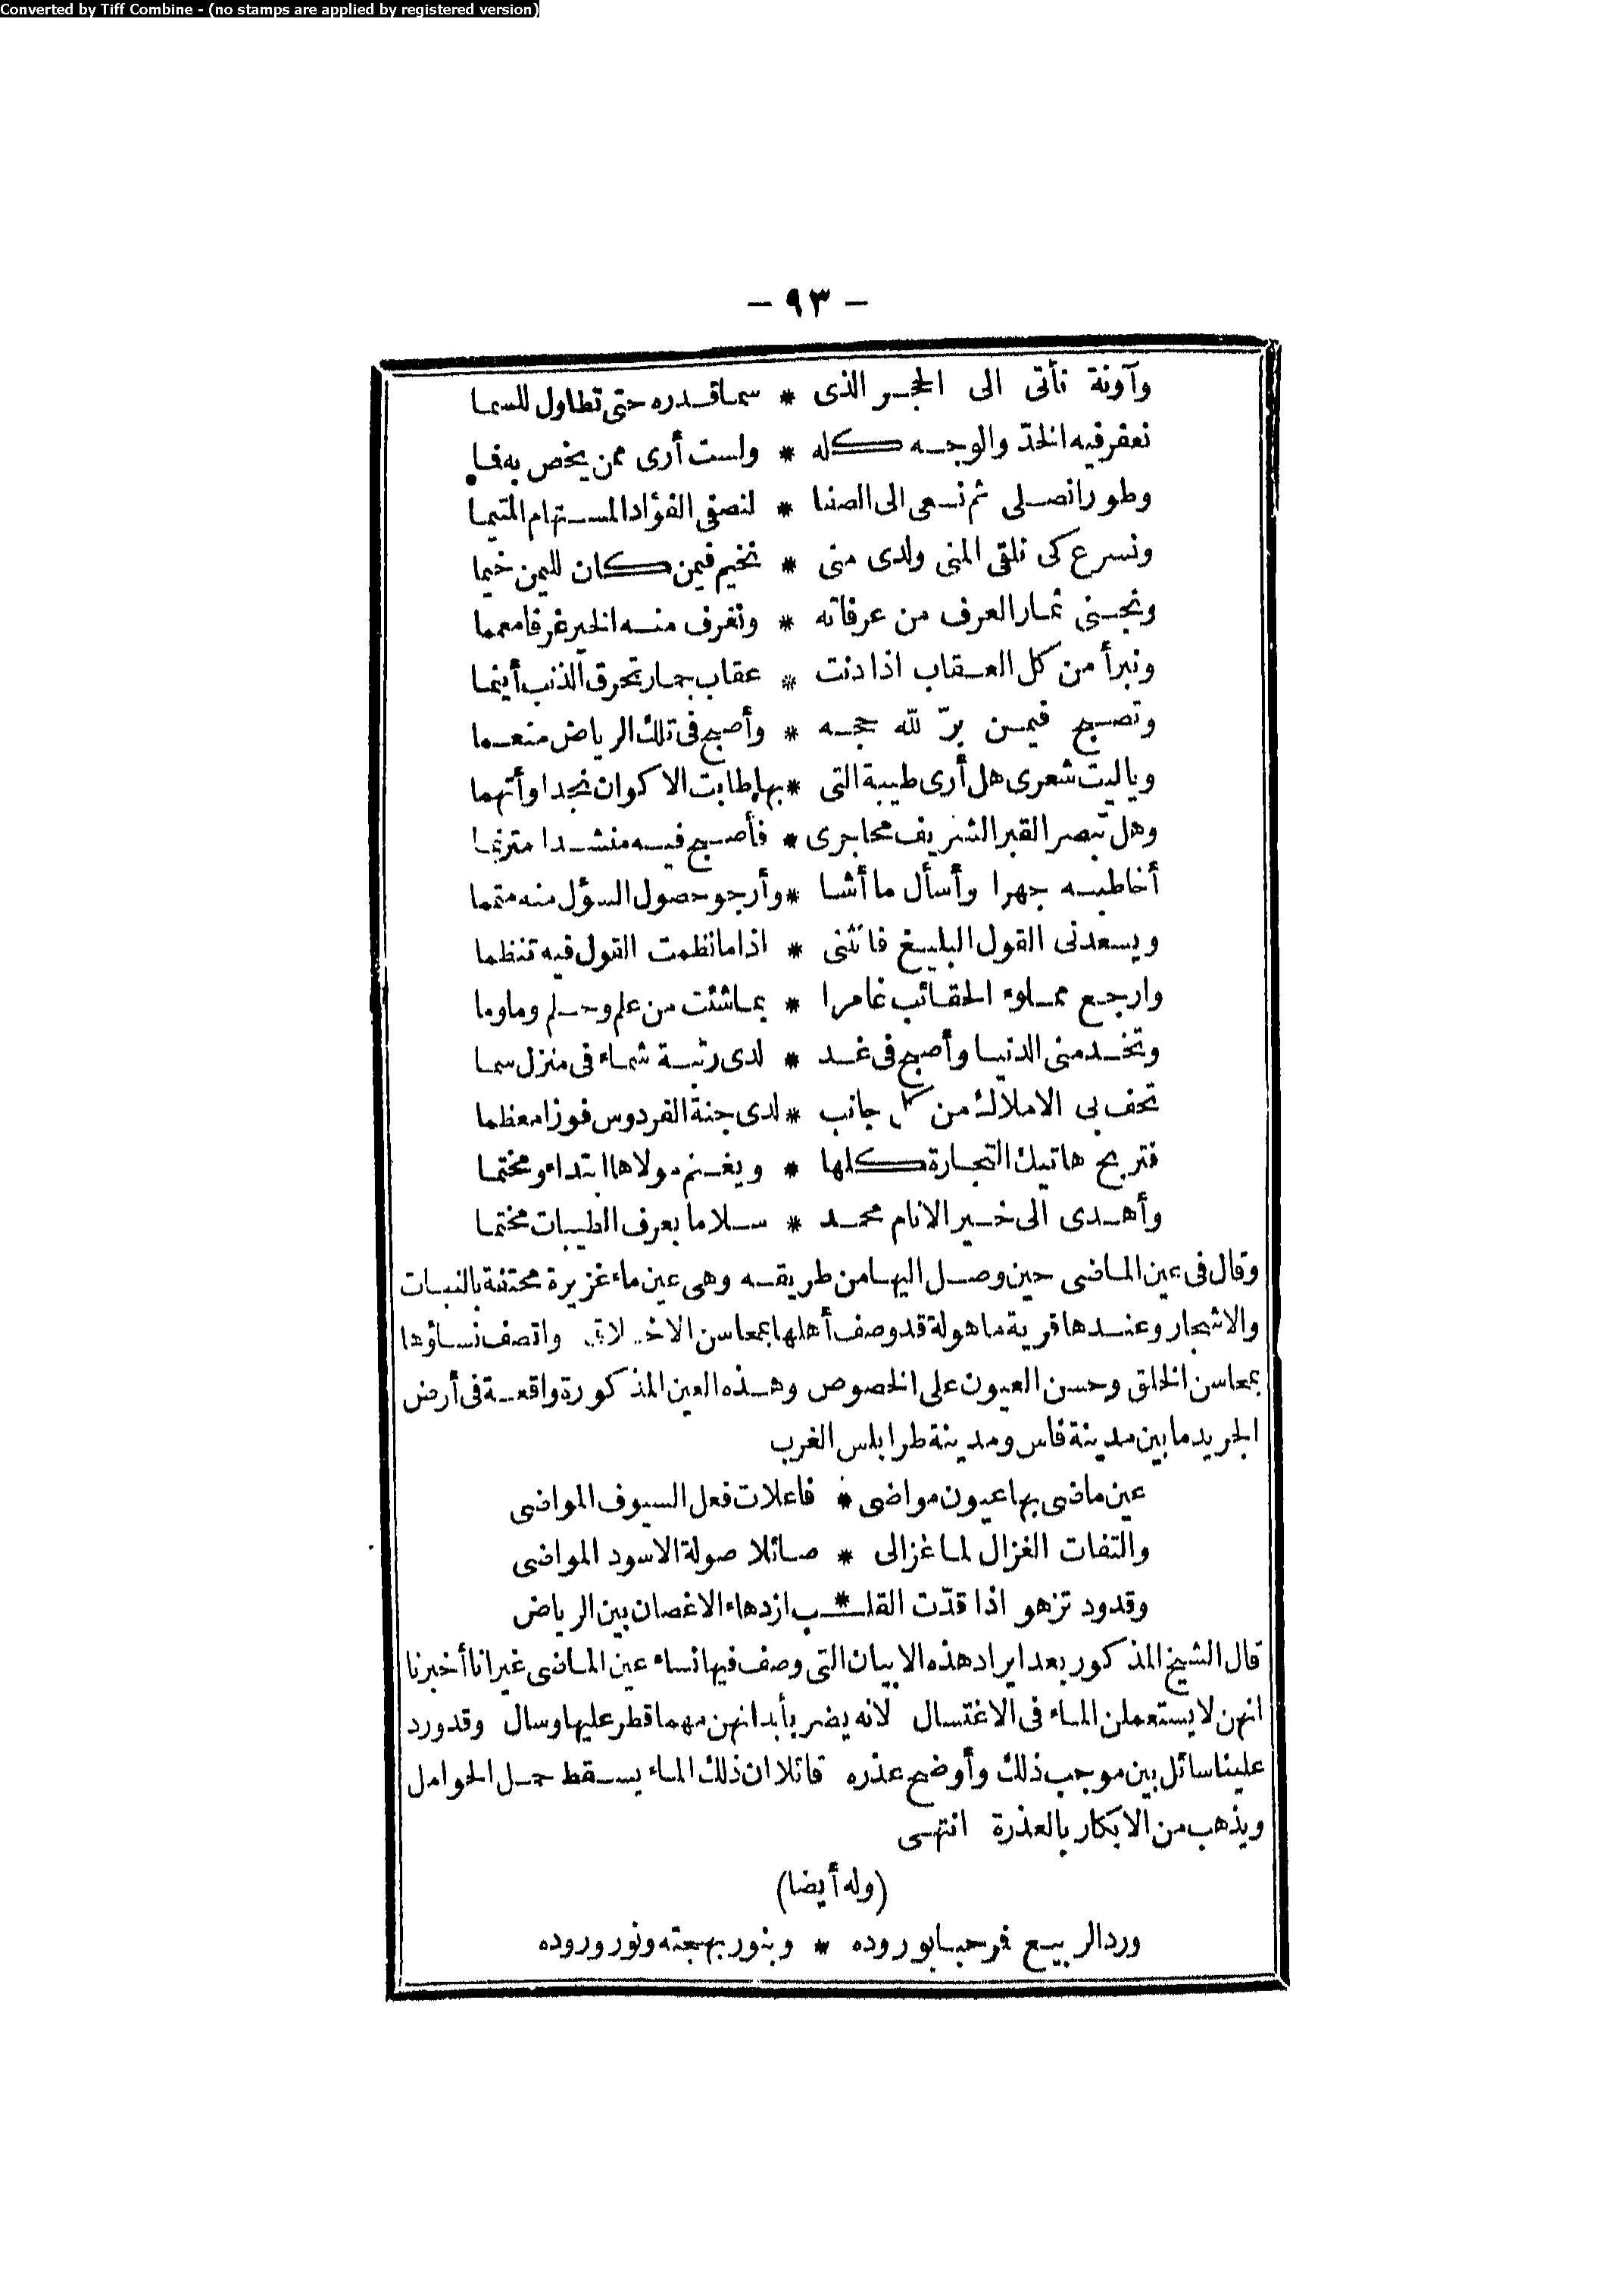 Converted by Tiff Combine - (no stamps are applied by registered version)
- ٩٣ -
وآونة نأتى الى الحجر الذى * سما قدره حتى تطاول للسما
نعفر فيه الخدّ والوجه كله * ولست أرى ممن يخص به فما
وطورا نصلى ثم نسعى الى الصفا * لنصفى الفؤاد المستهام المتيما
ونسرع كى نلقى المنى ولدى منى * نخيم فيمن كان لليمن خيما
ونجنى ثمار العرف من عرفاته * ونغرف منه الخير غرفا معمما
ونبرأ من كل العقاب اذا دنت * عقاب جمار تحرق الذنب أينما
وتصبح فيمن برّ لله حجه * وأصبح فى تلك الرياض منعما
وياليت شعرى هل أرى طيبة التى * بها طابت الاكوان نجدا وأتهما
وهل تبصر القبر الشريف محاجرى * فأصبح فيه منشدا مترنما
أخاطبه جهرا وأسأل ما أشا * وأرجو حصول السؤل منه متمما
ويسعدنى القول البليغ فانثنى * اذا ما نظمت القول فيه تنظما
وارجع مملوء الحقائب غامرا * بما شئت من علم وحلم وما وما
وتخدمنى الدنيا وأصبح فى غد * لدى رتبة شماء فى منزل سما
تحف بى الاملاك من كل جانب * لدى جنة الفردوس فوزا معظما
فتربح هاتيك التجارة كلها * ويغنم مولاها ابتداء ومختما
وأهدى الى خير الانام محمد * سلاما بعرف الطيبات مختما
وقال فى عين الماضى حين وصل اليها من طريقه وهى عين ماء غزيرة محتفة بالنبات
والاشجار وعندها قرية ماهولة قد وصف أهلها بمحاسن الاخلاق واتصف نساؤها
بمحاسن الخلق وحسن العيون على الخصوص وهذه العين المذكورة واقعة فى أرض
الجريد ما بين مدينة فاس ومدينة طرابلس الغرب
عين ماضى بها عيون مواضى * فاعلات فعل السيوف المواضى
والتفات الغزال لما غزالى * صائلا صولة الاسود المواضى
وقدود تزهو اذا قدّت القلـ * ـب ازدهاء الاغصان بين الرياض
قال الشيخ المذكور بعد ايراد هذه الابيات التى وصف فيها نساء عين الماضى غير انا أخبرنا
انهن لا يستعملن الماء فى الاغتسال لانه يضر بأبدانهن مهما قطر عليها وسال وقد ورد
علينا سائل بين موجب ذلك وأوضح عذره قائلا ان ذلك الماء يسقط حمل الحوامل
ويذهب من الابكار بالعذرة انتهى
(وله أيضا)
ورد الربيع فمرحبا بوروده * وبنور بهجته ونور وروده